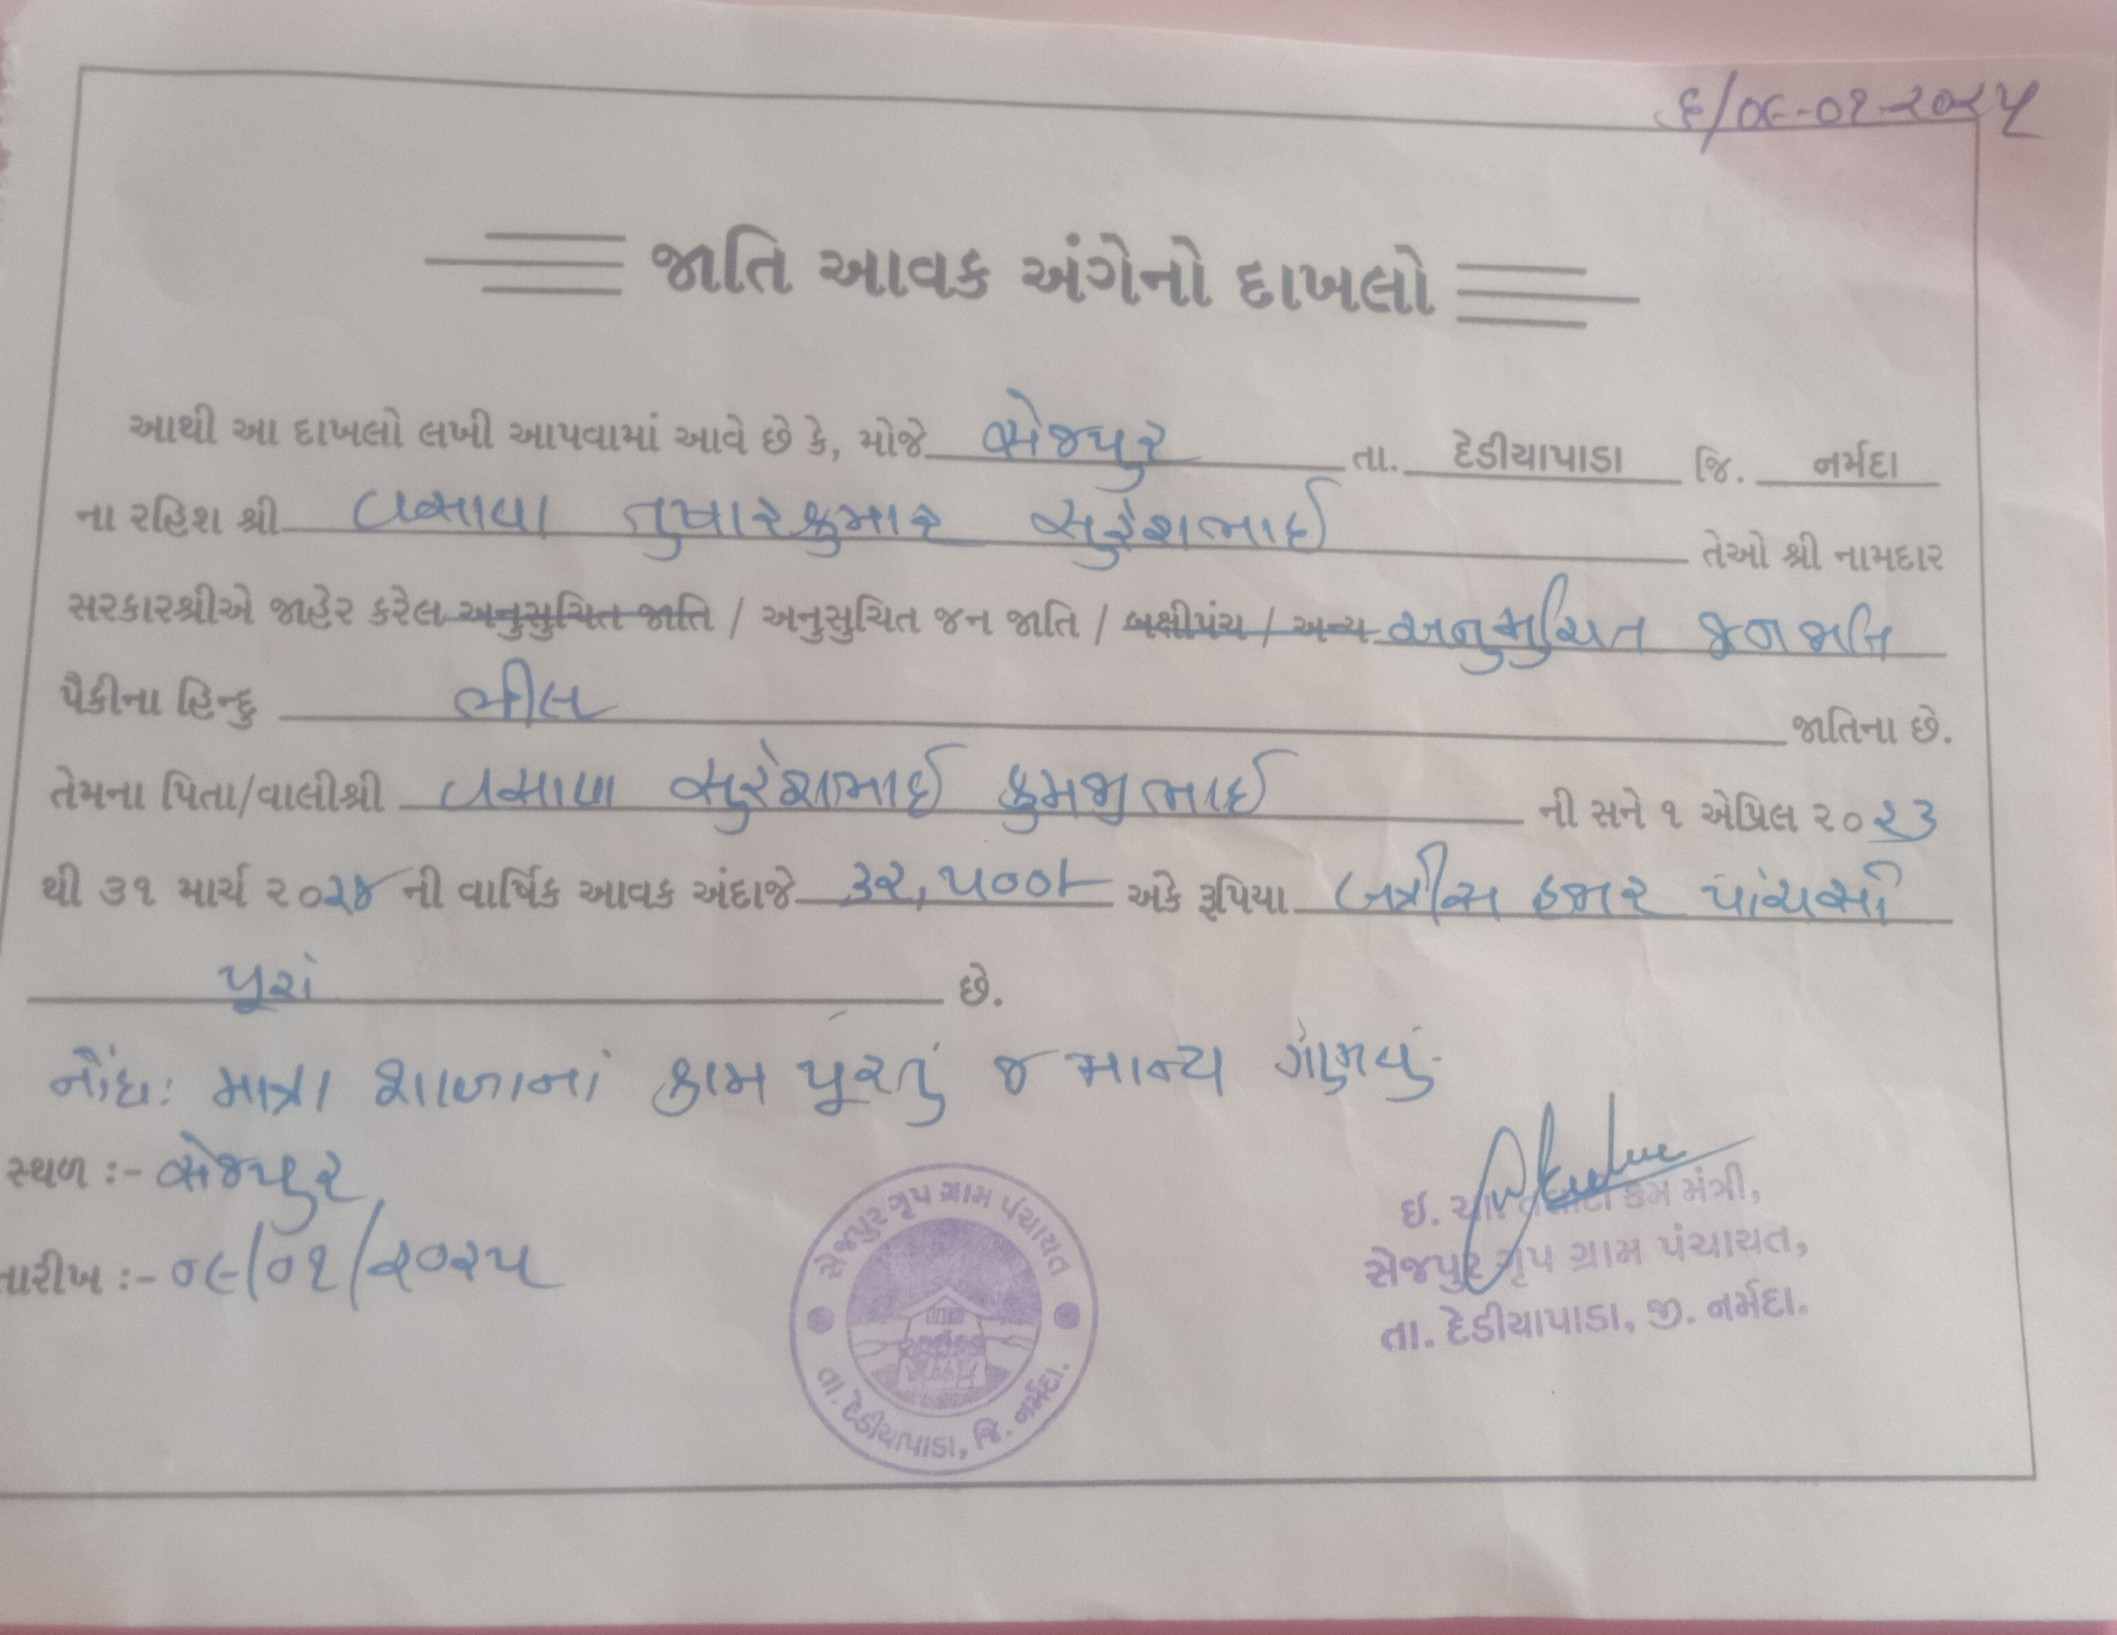 ૬/૦૯-૦૧-૨૦૨૫
જાતિ આવક અંગેનો દાખલો
આથી આ દાખલો લખી આપવામાં આવે છે કે, મોજે સેજપુર તા. દેડીયાપાડા જિ. નર્મદા
ના રહિશ શ્રી વસાવા તુષારકુમાર સુરેશભાઈ તેઓ શ્રી નામદાર
સરકારશ્રીએ જાહેર કરેલ અનુસુચિત જાતિ / અનુસુચિત જન જાતિ / બક્ષીપંચ / અન્ય અનુસુચિત જનજાતિ
પૈકીના હિન્દુ ભીલ જાતિના છે.
તેમના પિતા/વાલીશ્રી વસાવા સુરેશભાઈ ની સને ૧ એપ્રિલ ૨૦૨૩
થી ૩૧ માર્ચ ૨૦૨૪ ની વાર્ષિક આવક અંદાજે ૩૨,૫૦૦/- અંકે રૂપિયા બત્રીસ હજાર પાંચસો
પૂરાં છે.
નોંધ: માત્ર શાળાનાં કામ પૂરતું જ માન્ય ગણવું.
સ્થળ :- સેજપુર
તારીખ :- ૦૯/૦૧/૨૦૨૫
સેજપુર ગૃપ ગ્રામ પંચાયત
તા. દેડીયાપાડા, જિ. નર્મદા.
ઇ. ચા. તલાટી કમ મંત્રી,
સેજપુર ગૃપ ગ્રામ પંચાયત,
તા. દેડીયાપાડા, જી. નર્મદા.